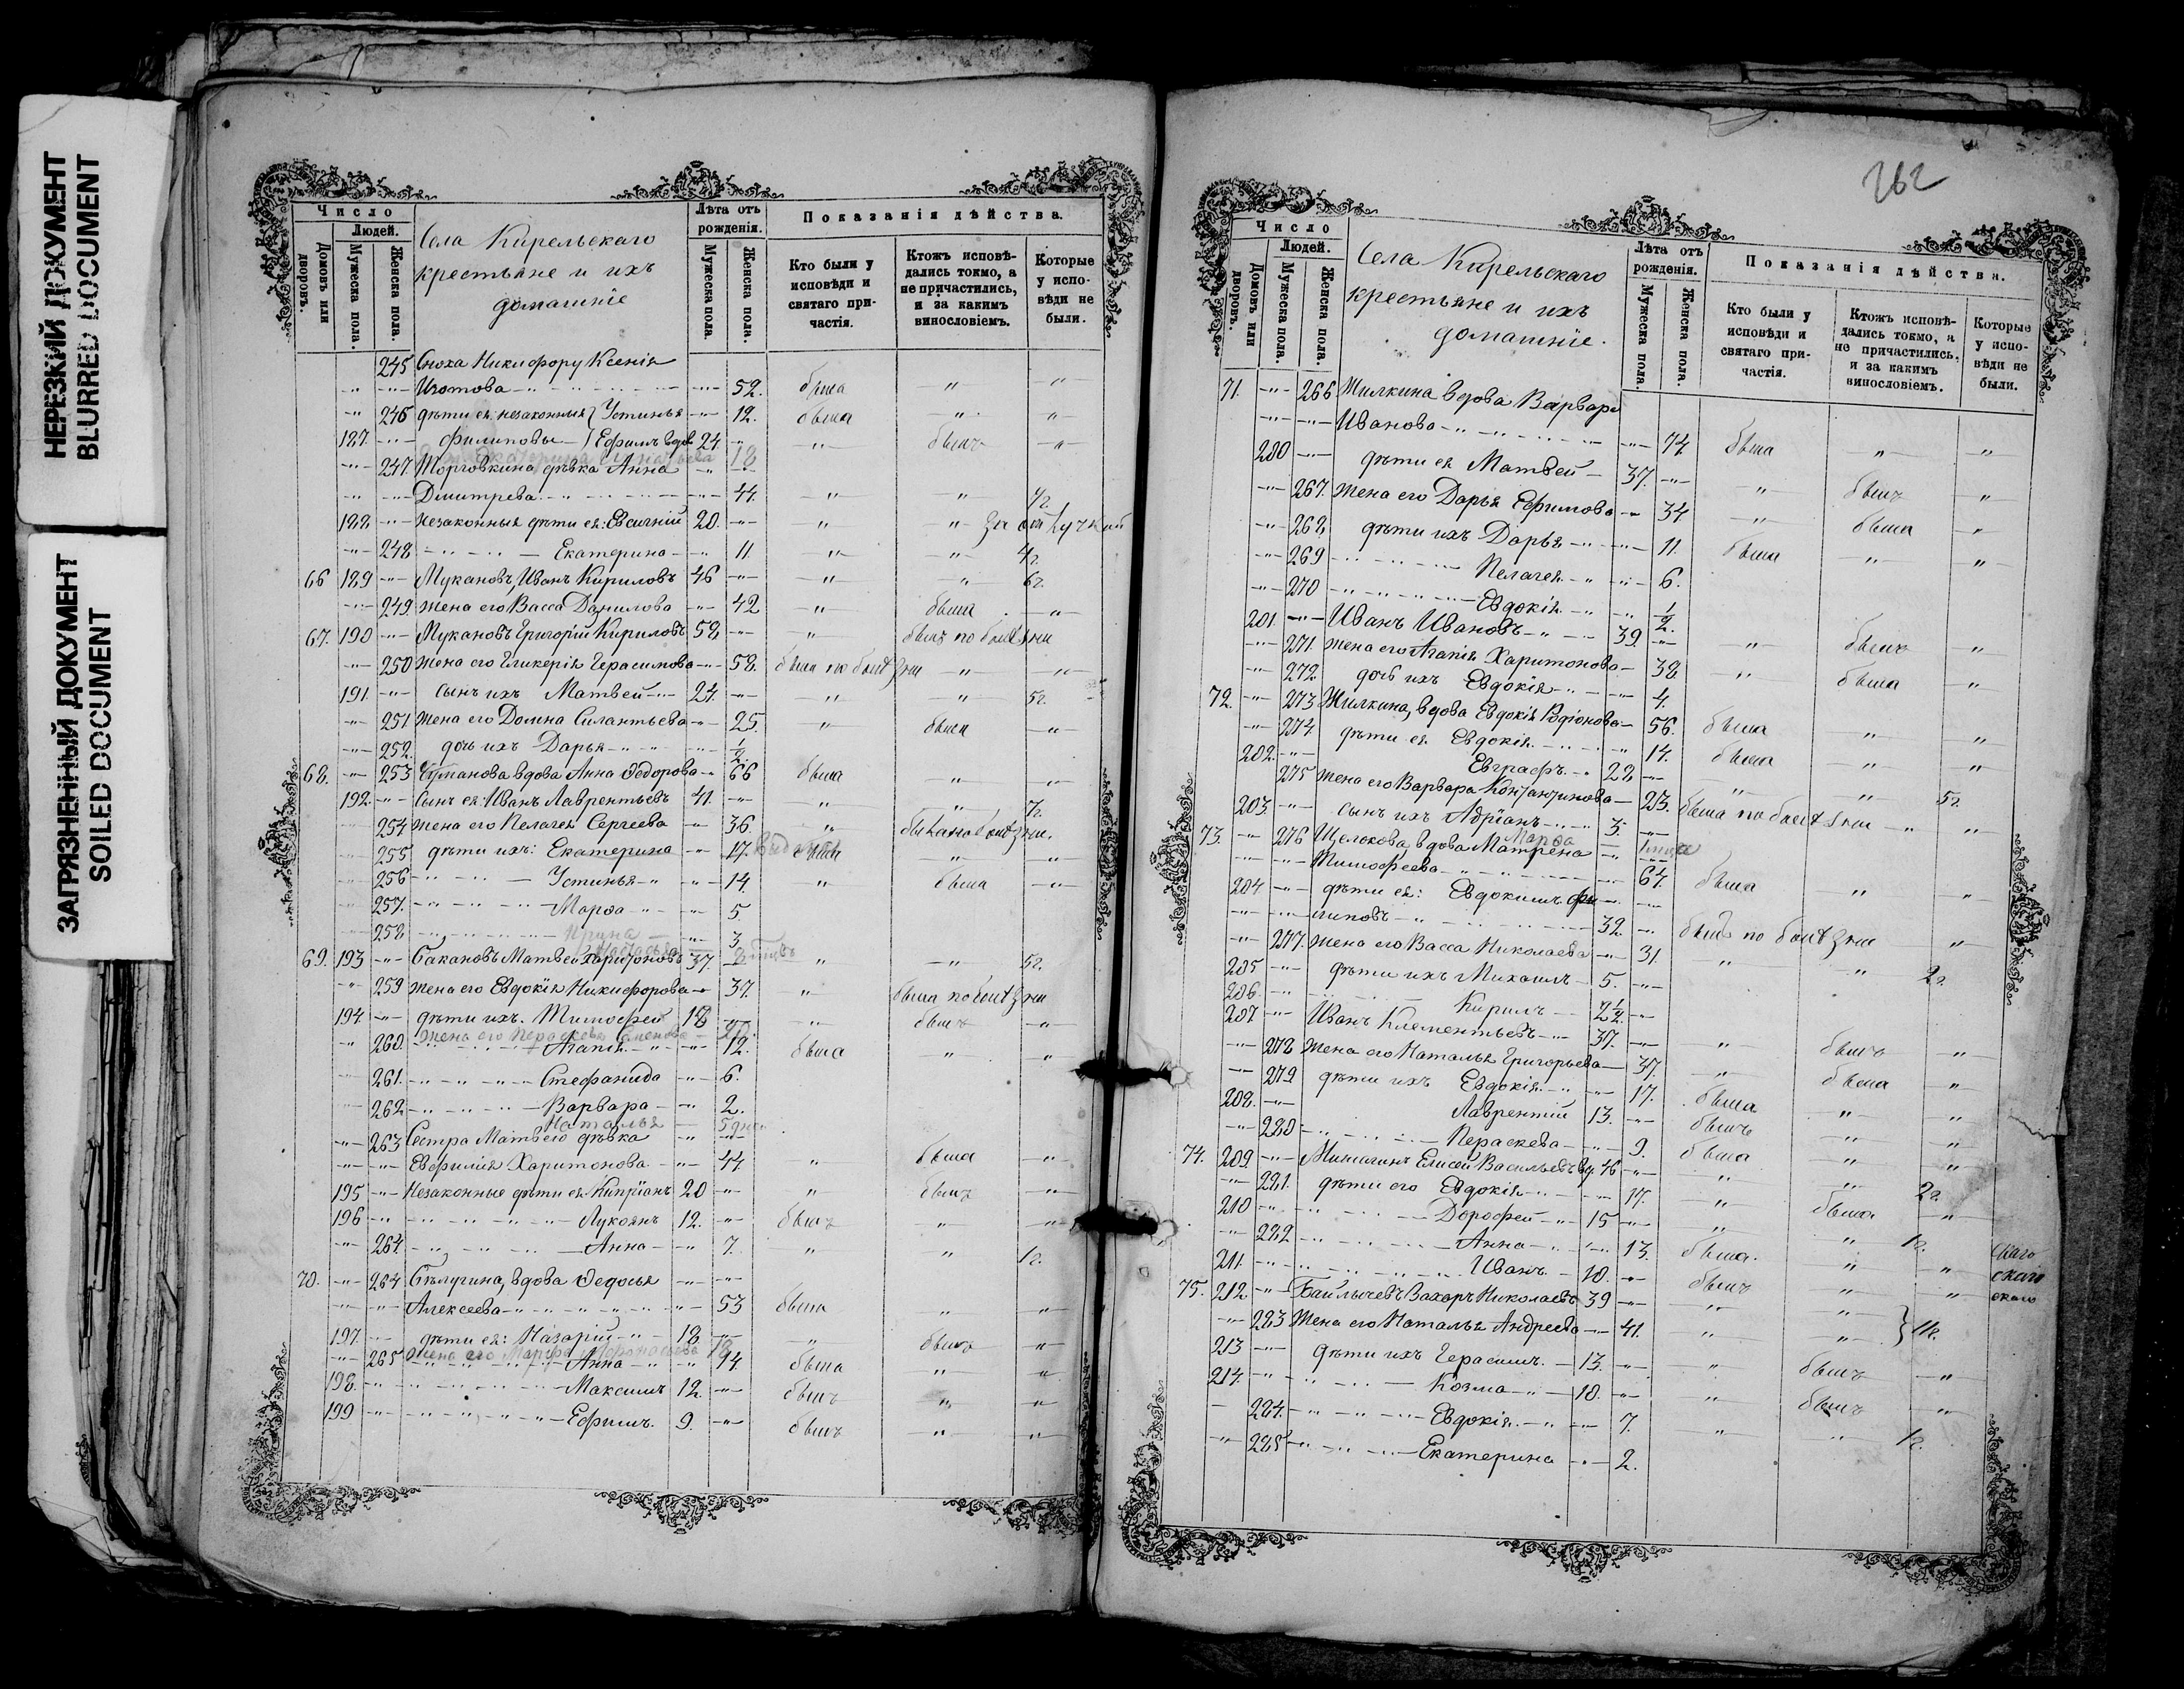 НЕРЕЗКИЙ ДОКУМЕНТ
BLURRED DOCUMENT
ЗАГРЯЗНЕННЫЙ ДОКУМЕНТ
SOILED DOCUMENT
Число
Людей.
Домовъ или дворовъ.
Мужеска пола.
Женска пола.
Села Кирельскаго
крестьяне и ихъ
домашніе
Лѣта отъ рожденія.
Мужеска пола.
Женска пола.
Показанія дѣйства.
Кто были у исповѣди и святаго при-частія.
Ктожъ исповѣ-дались токмо, а не причастились, и за какимъ винословіемъ.
Которые у испо-вѣди не были.
245 Сноха Никифору Ксенія
Изотова 52. была
246 дѣти ея незаконныя Устинья 12. была
187. филиповы Ефимъ вдов 24 былъ
18
247 Торговкина дѣвка Анна
Дмитрева 44. 4г.
188 незаконныя дѣти ея: Евсигній 20. за отлучкой
248 Екатерина 11 4г.
66 189 Мукановъ, Иванъ Кириловъ 46 6г.
249 жена его Васса Данилова 42 была
67. 190 Мукановъ Григорій Кириловъ 58 былъ по болѣзни
250 жена его Гликерія Герасимова 58. была по болѣзни
191. сынъ ихъ Матвей 24. 5г.
251 жена его Домна Силантьева 25. была
252. дочь ихъ Дарья 1/2
68. 253 вдова Анна Ѳедорова 66 была
192. сынъ ея Иванъ Лаврентьевъ 41. 7г.
254 жена его Пелагея Сергеева 36. была по болѣзни.
255 дѣти ихъ: Екатерина 17. была
256 Устинья 14. была
257. Марѳа 5.
258 Ирина 3
69. 193 Бакановъ Матвей Харитоновъ 37. 5г.
259 жена его Евдокія Никифорова 37. была по болѣзни
194 дѣти ихъ. Тимофей 18 былъ
жена его Параскева Семенова
260. Агапія 12. была
261. Стефанида 6.
262 Варвара 2.
Наталья 5 дней
263 Сестра Матвею дѣвка
Евфимія Харитонова. 44 была
195 Незаконные дѣти ея Кипріанъ 20 былъ
196 Лукоянъ 12. былъ
264 Анна 7. 1г.
70. 264 Бѣлугина, вдова Ѳедосья
Алексеева 53 была
197. дѣти ея: Назарій 18 былъ
жена его Марѳа Афонасьева 18
265 Анна 14 была
198. Максимъ 12. былъ
199 Ефимъ. 9. былъ
262
Число
Людей.
Домовъ или дворовъ.
Мужеска пола.
Женска пола.
Села Кирельскаго
крестьяне и ихъ
домашніе.
Лѣта отъ рожденія.
Мужеска пола.
Женска пола.
Показанія дѣйства.
Кто были у исповѣди и святаго при-частія.
Ктожъ исповѣ-дались токмо, а не причастились, и за какимъ винословіемъ.
Которые у испо-вѣди не были.
71. 266 Жилкина вдова Варвара
Иванова 74. была
200 дѣти ея Матвей 37. былъ
267. жена его Дарья Ефимова 34 была
268 дѣти ихъ Дарья 11. была
269 Пелагея 6.
270 Евдокія 1/2.
201. Иванъ Ивановъ 39. былъ
271. жена его Агапія Харитонова 38 была
272. дочь ихъ Евдокія 4.
72. 273 Жилкина, вдова Евдокія Родіонова 56. была
274. дѣти ея Евдокія 14. была
202. Евграфъ 22 5г.
275 жена его Варвара Константинова 23. была по болѣзни
203. сынъ ихъ Адріанъ 3.
Марѳа
73. 276 Щелокова, вдова Матрена
Тимофеева 64. была
204 дѣти ея: Евдокимъ Фи
липовъ 32. былъ по болѣзни
277. жена его Васса Николаева 31. 2г.
205 дѣти ихъ Михаилъ 5.
206. Кирилъ 2 1/2
207 Иванъ Клементьевъ 37. былъ
278 жена его Наталья Григорьева 37. была
279 дѣти ихъ Евдокія 17. была
208. Лаврентій 13. былъ
280 Параскева 9. была
74. 209 Мишагинъ Елисей Васильевъ вд. 46 2г.
281. дѣти его Евдокія 17. была
210 Дорофей 15 1г.
282 Анна 13. была.
211. Иванъ 10. былъ
75. 212. Байлычевъ Захаръ Николаевъ 39
283 жена его Наталья Андреева 41. 1г.
213 дѣти ихъ Герасимъ. 13. былъ
214. Козма 10. былъ
284. Евдокія. 7. 1г.
285 Екатерина 2.
скаго
скаго
скаго